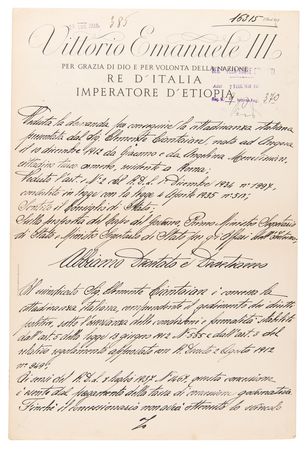 385
16315
Vittorio Emanuele III
PER GRAZIA DI DIO E PER VOLONTÀ DELLA NAZIONE
RE D'ITALIA
IMPERATORE D'ETIOPIA
370
Veduta la domanda per conseguire la cittadinanza italiana
presentata dal Sig. Clemente nato ad
il 10 dicembre 1912 da Giacomo e da Angelina
cittadino residente a Roma;
Veduto l'art. 2 del R.D.L. 1 Dicembre 1934 n° 1997,
convertito in legge con la legge 4 Aprile 1935 n° 517;
Sentito il Consiglio di Stato;
Sulla proposta del Capo del Governo, Primo Ministro Segretario
di Stato e Ministro Segretario di Stato per gli Affari dell'Interno;
Abbiamo Decretato e Decretiamo
Al summenzionato Sig. Clemente è concessa la
cittadinanza italiana, comprendente il godimento dei diritti
politici, sotto l'osservanza delle condizioni e formalità stabilite
dall'art. 5 della legge 13 giugno 1912 N° 555 e dall'art. 5 del
relativo regolamento approvato con R. Decreto 2 Agosto 1912
n° 949.
Ai sensi del R.D.L. 2 luglio 1937 N° questa concessione
è esente dal pagamento della tassa di concessione governativa.
Finché il concessionario non avrà ottenuto lo svincolo